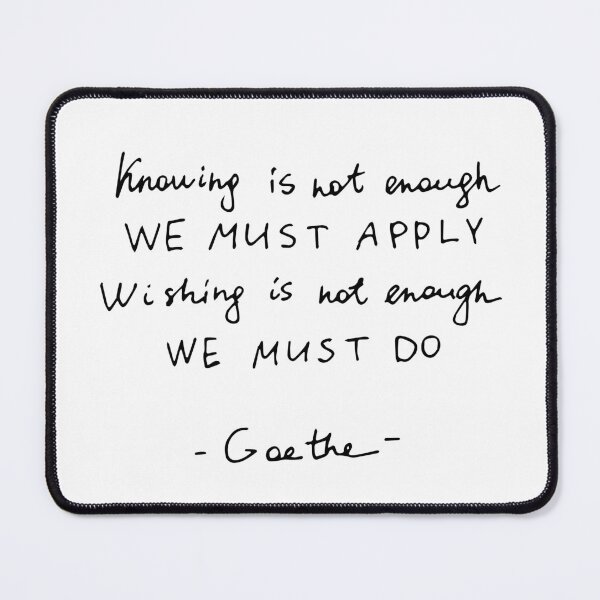 Knowing is not enough
WE MUST APPLY
Wishing is not enough
WE MUST DO
- Goethe -